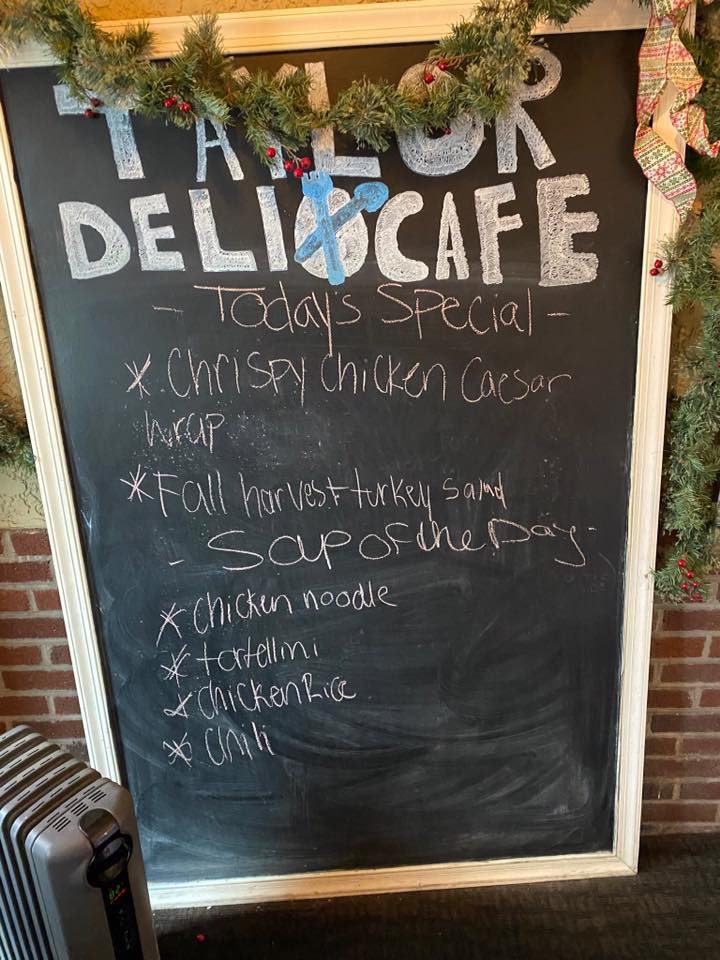 TAYLOR
DELI CAFE
- Today's Special -
* Chrispy chicken Caesar
wrap
* Fall harvest turkey salad
- Soup of the Day -
* chicken noodle
* tortellini
* chicken Rice
* chili